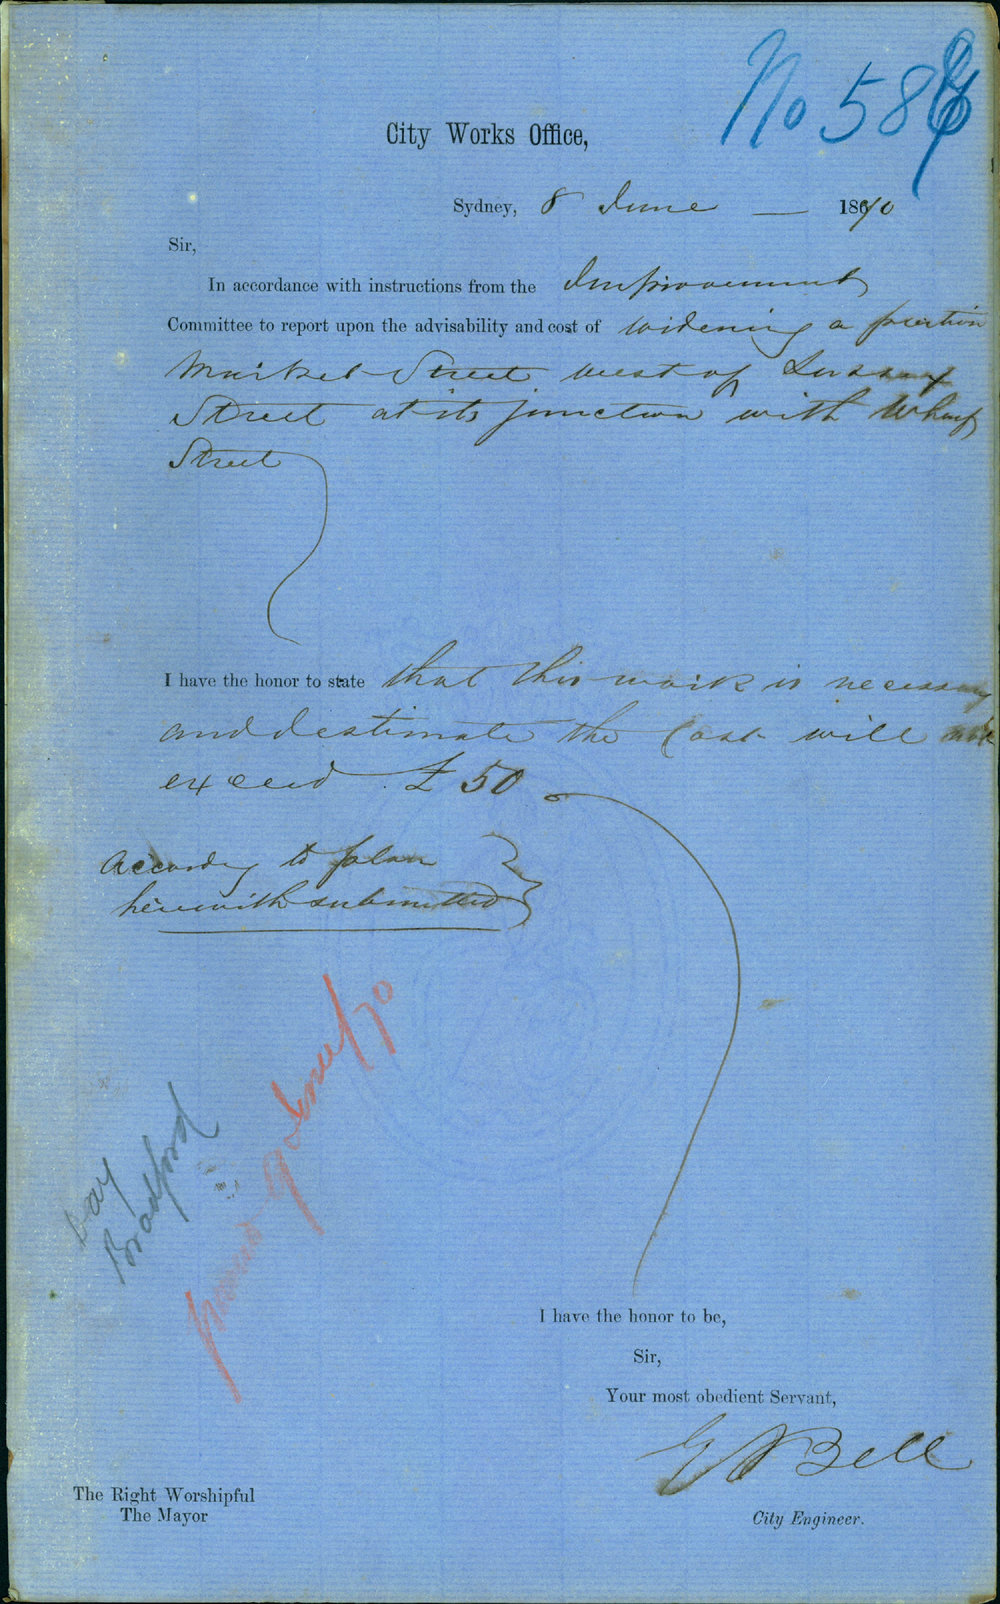 No 586
City Works Office,
Sydney, 8 June — 1870
Sir,
In accordance with instructions from the Improvement
Committee to report upon the advisability and cost of widening a portion
Market Street west of Sussex
Street at its junction with Wharf
Street
I have the honor to state that this work is necessary
and I estimate the Cost will not
exceed £50
According to plan
herewith submitted
Day
Bradford
9 June/70
I have the honor to be,
Sir,
Your most obedient Servant,
Bell
The Right Worshipful
The Mayor
City Engineer.